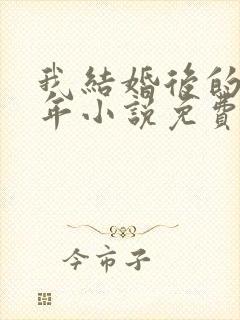 我結婚後的
年小說免費
今市子